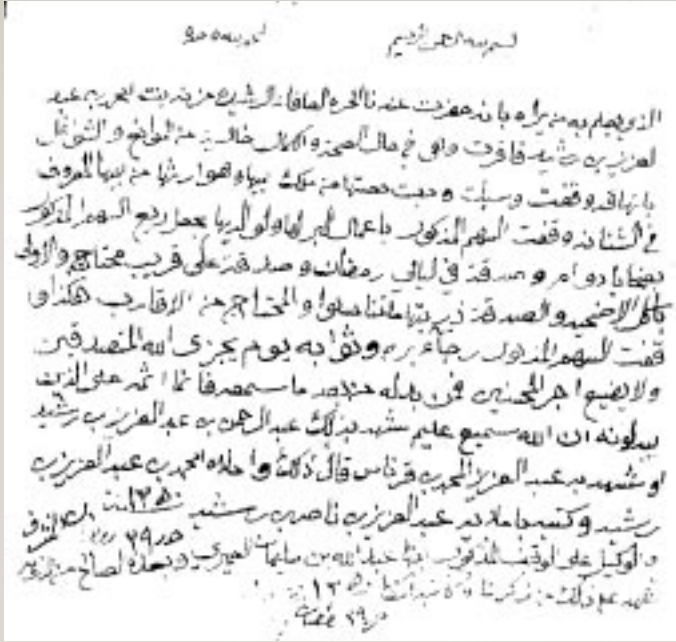 بسم الله الرحمن الرحيم الحمد لله وحده
الذي يعلم به من يراه بانه حضرت عندنا الحره العاقله الرشيده مزنه بنت محمد بن عبد
العزيز بن رشيد فاقرت وهي في حال الصحه والكمال خاليه من الموانع والشواغل
بانها قد وقفت وسبلت وحبست حصتها من ملك ابيها وهو ارثها من ابيها المعروف
في الشنانه وقفت السهم المذكور باعمال البر لها ولوالديها يجعل ربع السهم المذكور
بضحايا دوام وصدقة في ليالي رمضان وصدقة على قريب محتاج والاولى
باكل الاضحيه والصدقة ذريتها ما تناسلوا والمحتاج من الاقارب هكذا و
قفت السهم المذكور رجاء بره وثوابه يوم يجزي الله المتصدقين
ولا يضيع اجر المحسنين فمن بدله بعد ما سمعه فانما اثمه على الذين
يبدلونه ان الله سميع عليم شهد بذلك عبد الرحمن بن عبد العزيز بن رشيد
وشهد به عبد العزيز المحمد بن فرناس قال ذلك واملاه محمد بن عبد العزيز بن
رشيد وكتبه باملائه عبد العزيز بن ناصر بن رشيد
والوكيل على الوقف المذكور عبد الله بن سليمان وبعده صالح
شهد على ذلك من ذكرنا